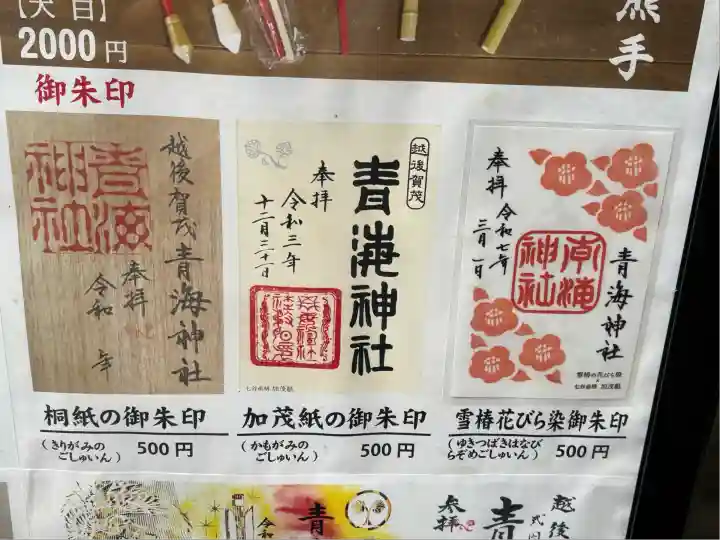 【大 白】
2000円
熊手
御朱印
越後賀茂 青海神社
奉拝
令和 年
青海神社
越後賀茂
青海神社
奉拝
令和三年
十二月三十一日
七谷産 加茂紙
奉拝
令和七年
三月一日
青海神社
青海神社
雪椿の花びら染
加茂紙
桐紙の御朱印
(きりがみの
ごしゅいん)
500円
加茂紙の御朱印
(かもがみの
ごしゅいん)
500円
雪椿花びら染御朱印
(ゆきつばきはなび
らぞめごしゅいん)
500円
令和
青
参拝
青
越後